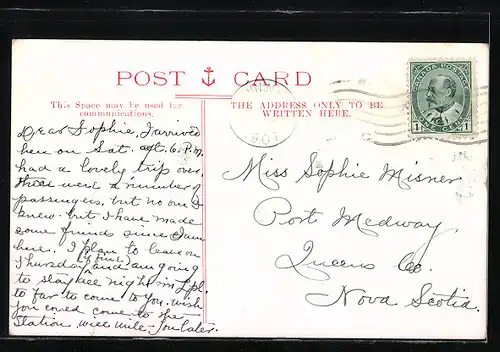 POST CARD
This Space may be used for
communications.
THE ADDRESS ONLY TO BE
WRITTEN HERE.
1907
CANADA POSTAGE
1 1
Dear Sophie, I arrived
here on Sat. aft. 6. P.M.
had a lovely trip over.
there were a number of
passengers, but no one I
knew. but I have made
some friends since I am
here. I plan to leave on
Thursday and am going
to stay all night in L'pl.
to far to come to you. wish
you could come to the
Station will write you later.
Miss Sophie Misner
Port Medway
Queens Co.
Nova Scotia.